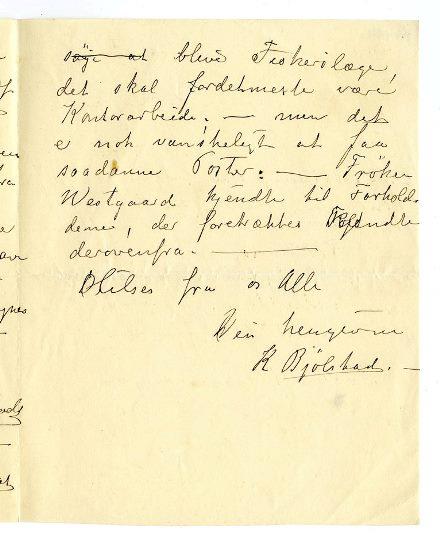 søge at bleve Fiskerilæge,
det skal fordetmeste være
Kontorarbeide. — men det
er nok vanskeligt at faa
saadanne Poster. — Frøken
Westgaard kjendte til Forhold-
dene, der foretrækkes Kjendte
derovenfra. —
Hilsen fra os Alle
Din hengivne
K Bjølstad. —